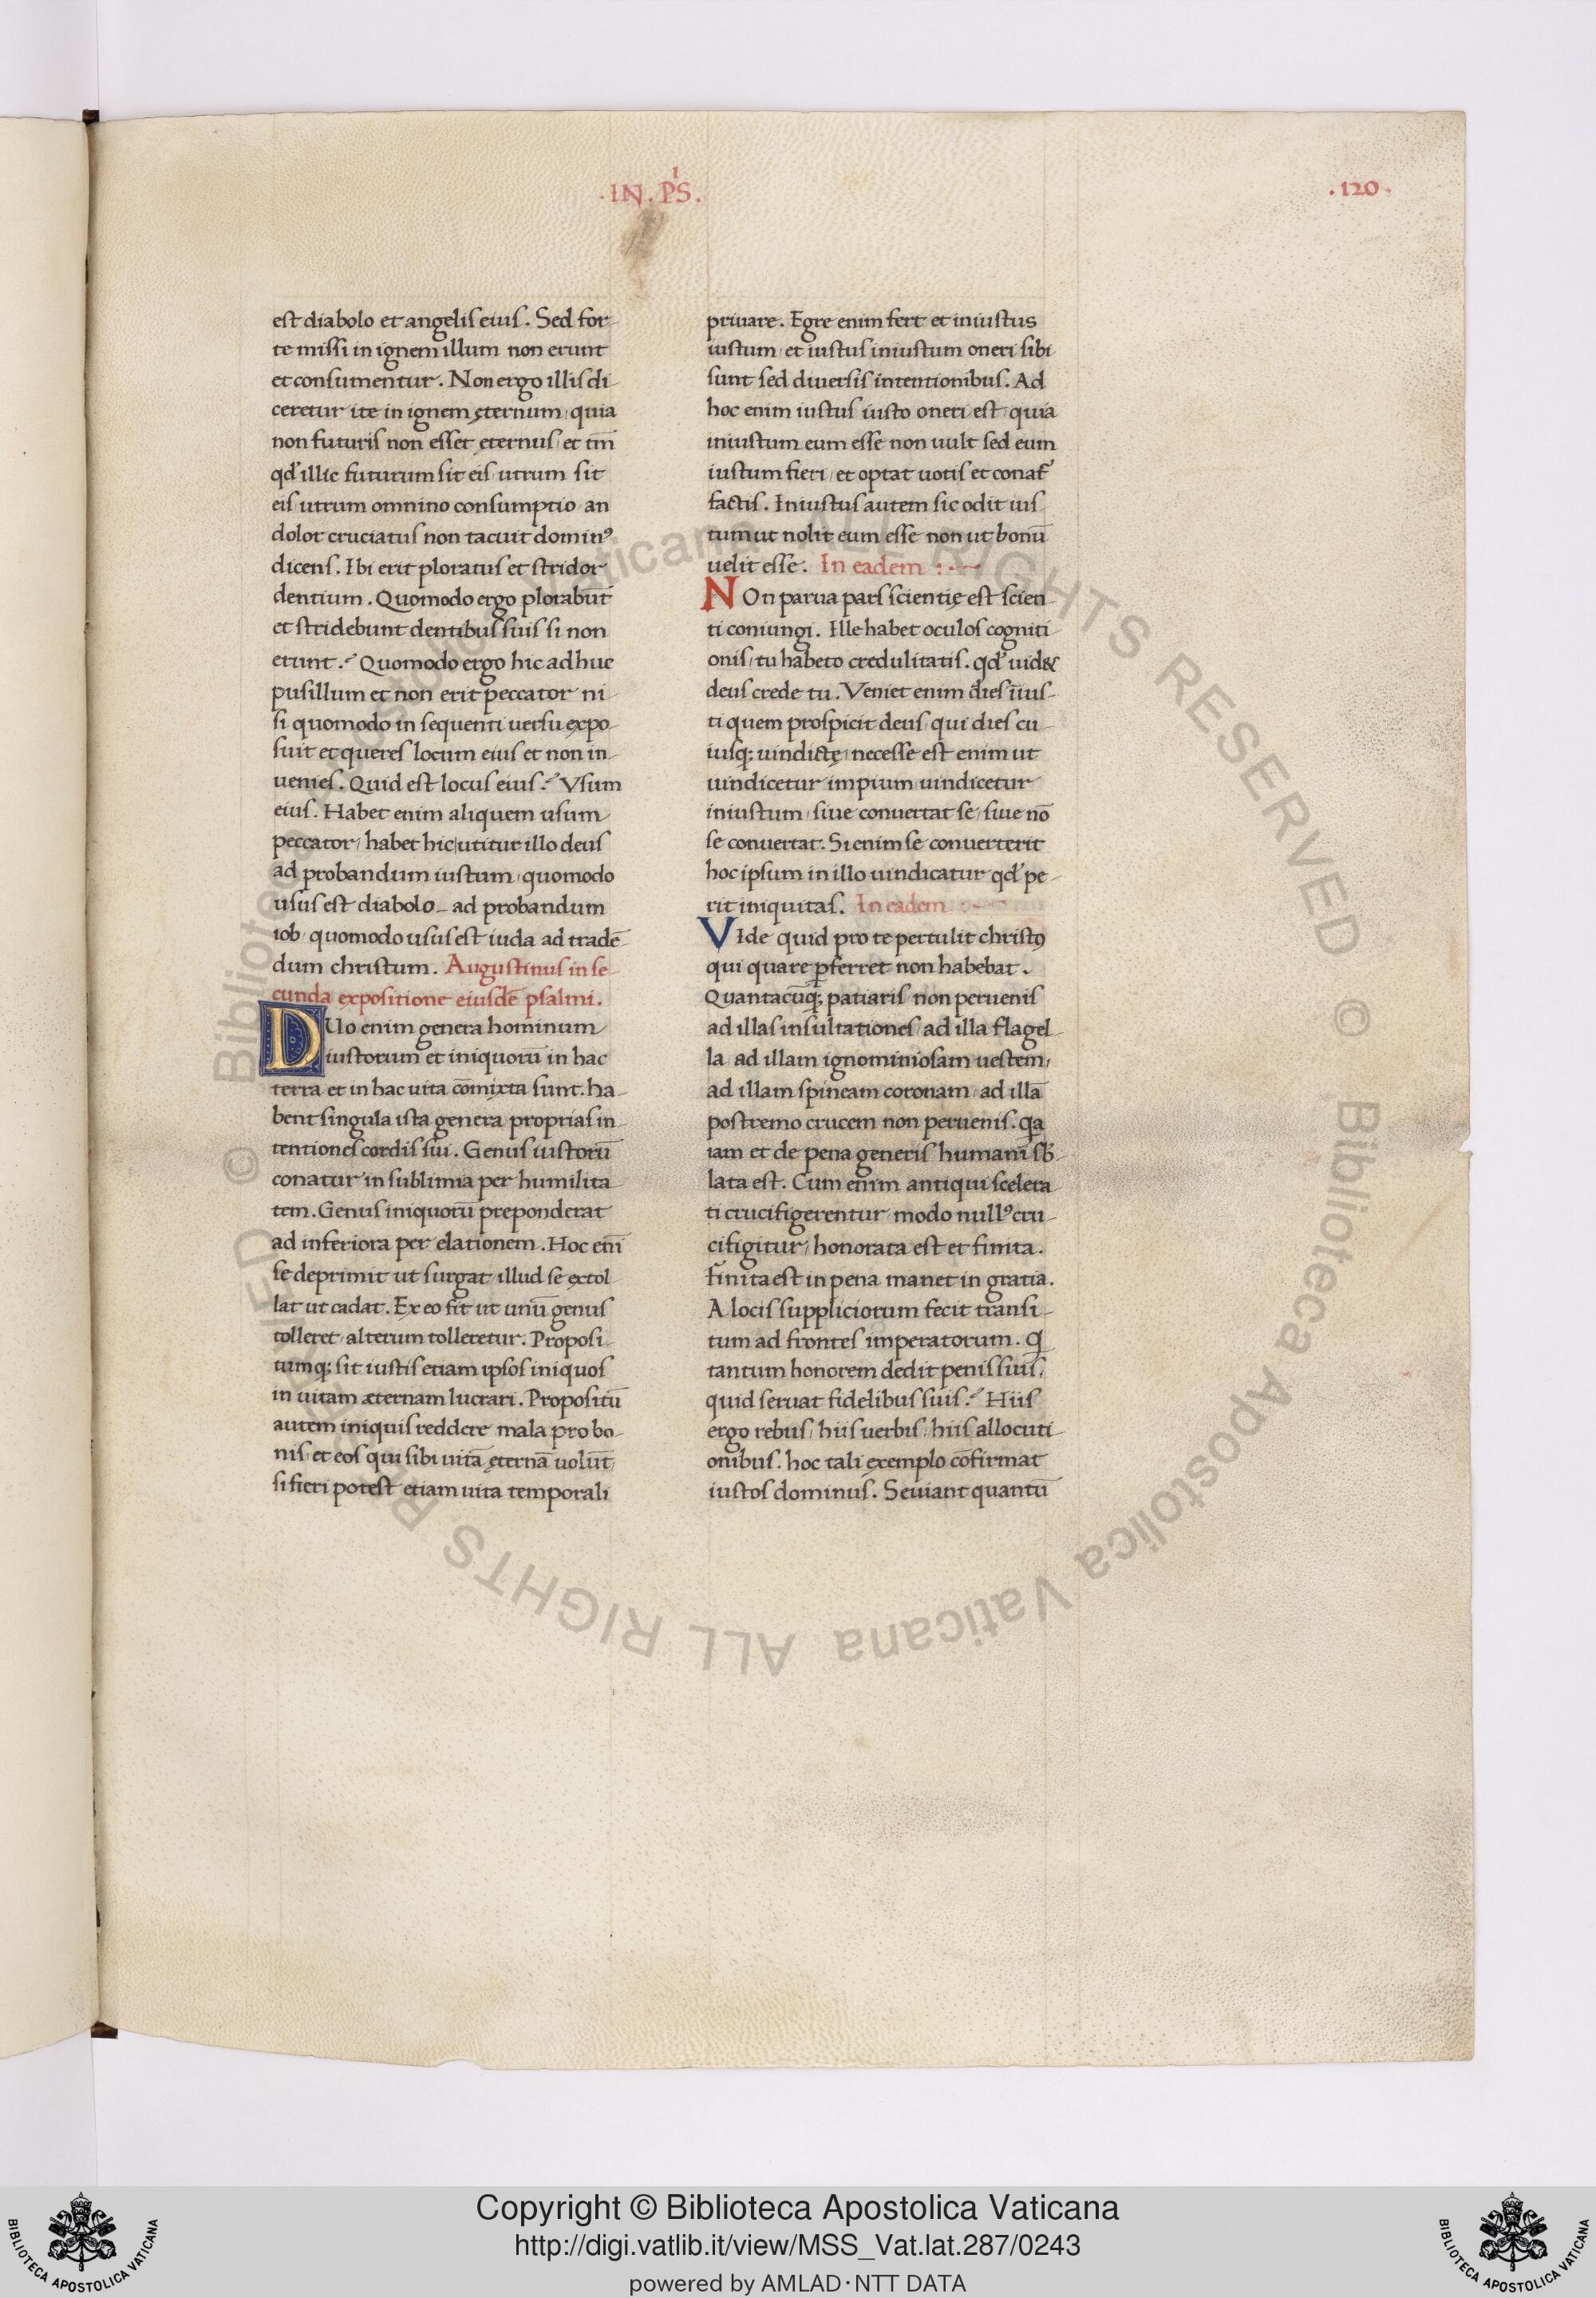 .IN.PS.
1
.120.
est diabolo et angelis eius. Sed for-
te missi in ignem illum non erunt
et consumentur. Non ergo illis di-
ceretur ite in ignem ęternum, quia
non futuris non esset ęternus, et tm̄
qd' illic futurum sit eis, utrum sit
eis utrum omnino consumptio, an
dolor cruciatus non tacuit domin⁹
dicens. Ibi erit ploratus et stridor
dentium. Quomodo ergo plorabūt
et stridebunt dentibus suis si non
erunt? Quomodo ergo hic adhuc
pusillum et non erit peccator ni-
si quomodo in sequenti uersu expo-
suit et queres locum eius et non in-
uenies. Quid est locus eius? Vsum
eius. Habet enim aliquem usum
peccator, habet hic utitur illo deus
ad probandum iustum, quomodo
usus est diabolo ad probandum
iob, quomodo usus est iuda ad tradē-
dum christum. Augustinus in se-
cunda expositione eiusdē psalmi.
DUo enim genera hominum
iustorum et iniquorū in hac
terra et in hac uita cōmixta sunt. ha-
bent singula ista genera proprias in-
tentiones cordis sui. Genus iustorū
conatur in sublimia per humilita-
tem. Genus iniquorū preponderat
ad inferiora per elationem. Hoc eni̅
se deprimit ut surgat, illud se extol-
lat ut cadat. Ex eo fit ut unū genus
tolleret, alterum tolleretur. Proposi-
tumq; sit iustis etiam ipsos iniquos
in uitam æternam lucrari. Propositū
autem iniquis reddere mala pro bo-
nis, et eos qui sibi uitā ęternā uolūt,
si fieri potest etiam uita temporali
priuare. Egre enim fert et iniustus
iustum, et iustus iniustum oneri sibi
sunt sed diuersis intentionibus. Ad
hoc enim iustus iusto oneri est, quia
iniustum eum esse non uult sed eum
iustum fieri, et optat uotis et conat'
factis. Iniustus autem sic odit ius-
tum ut nolit eum esse non ut bonū
uelit esse. In eadem :·~
NOn parua pars scientię est scien-
ti coniungi. Ille habet oculos cogniti-
onis, tu habeto credulitatis. qd' uid&
deus crede tu. Veniet enim dies iius-
ti quem prospicit deus, qui dies cu-
iusq; uindictę, necesse est enim ut
uindicetur impium uindicetur
iniustum, siue conuertat se, siue nō
se conuertat. Si enim se conuerterit
hoc ipsum in illo uindicatur qd' pe-
rit iniquitas. In eadem :·~
VIde quid pro te pertulit christ⁹
qui quare ꝑferret non habebat.
Quantacūq; patiaris non peruenis
ad illas insultationes, ad illa flagel-
la, ad illam ignominiosam uestem,
ad illam spineam coronam, ad illā
postremo crucem non peruenis. qa
iam et de pena generis humani sb-
lata est. Cum enim antiqui scelera-
ti crucifigerentur modo null⁹ cru-
cifigitur, honorata est et finita.
finita est in pena manet in gratia.
A locis suppliciorum fecit transi-
tum ad frontes imperatorum. q
tantum honorem dedit penis suis,
quid seruat fidelibus suis? Hiis
ergo rebus, hiis uerbis, hiis allocuti-
onibus. hoc tali exemplo cōfirmat
iustos dominus. Seuiant quantū
© Biblioteca Apostolica Vaticana ALL RIGHTS RESERVED © Biblioteca Apostolica Vaticana ALL RIGHTS RESERVED
BIBLIOTECA APOSTOLICA VATICANA
Copyright © Biblioteca Apostolica Vaticana
http://digi.vatlib.it/view/MSS_Vat.lat.287/0243
powered by AMLAD·NTT DATA
BIBLIOTECA APOSTOLICA VATICANA